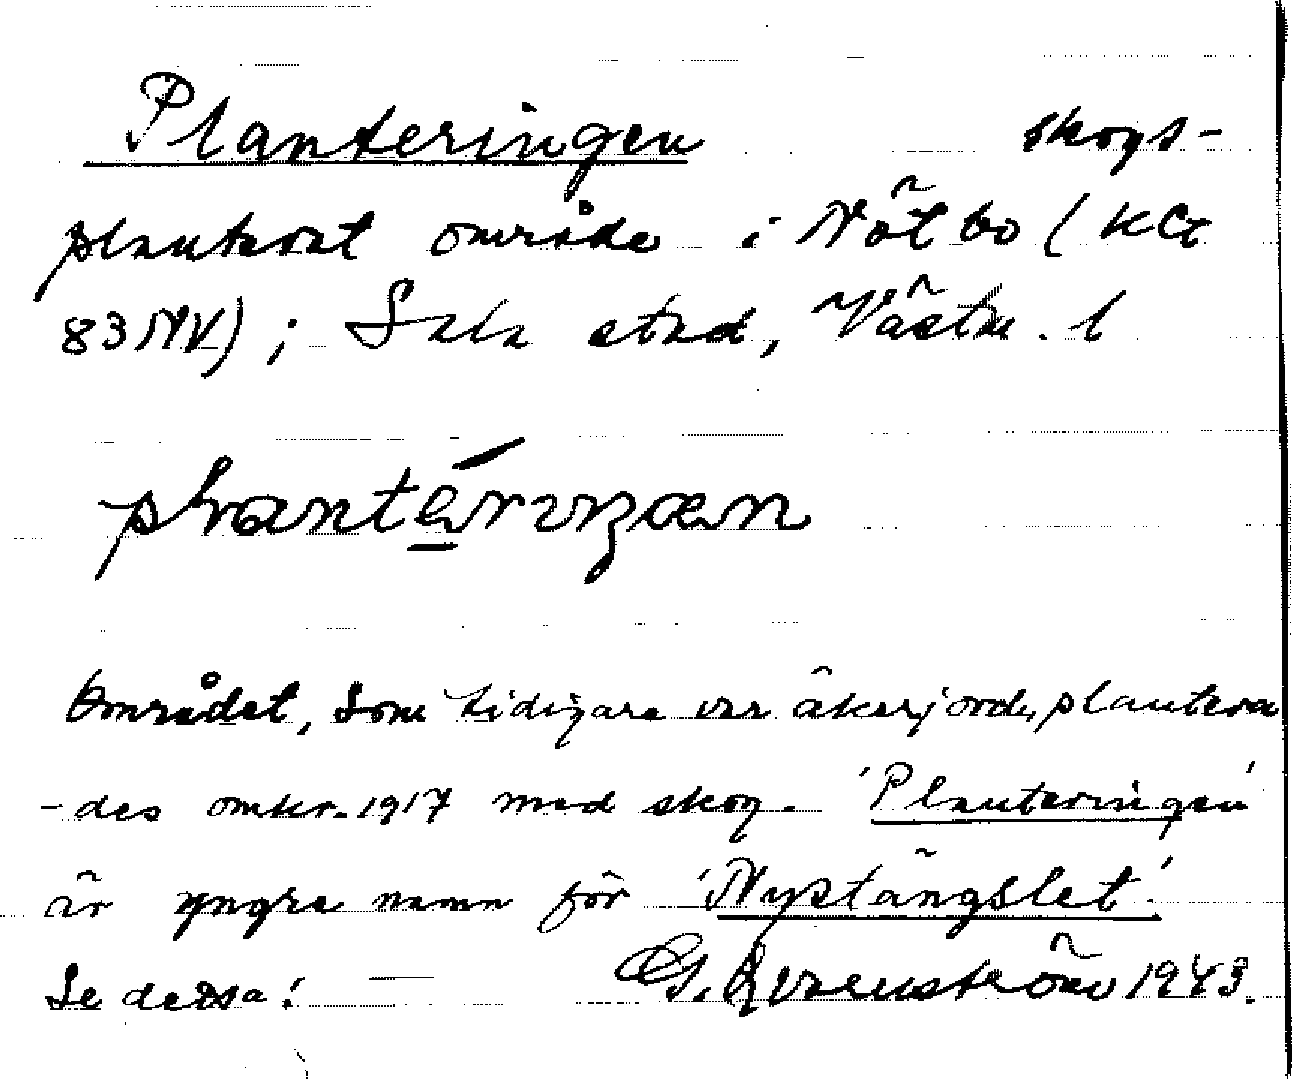 Planteringen skogs-
planterat område i Nötbo (K Ct
83 NV); Sala stad, Västm. l
plantérıŋæn
Området, som tidigare var åkerjord, plantera
-des omkr. 1917 med skog. 'Planteringen'
är yngre namn för 'Nystängslet'.
Se dessa! — G. Qvarnström 1943.